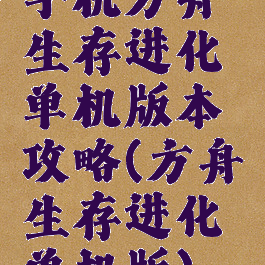 手机方舟
生存进化
单机版本
攻略(方舟
生存进化
单机版)